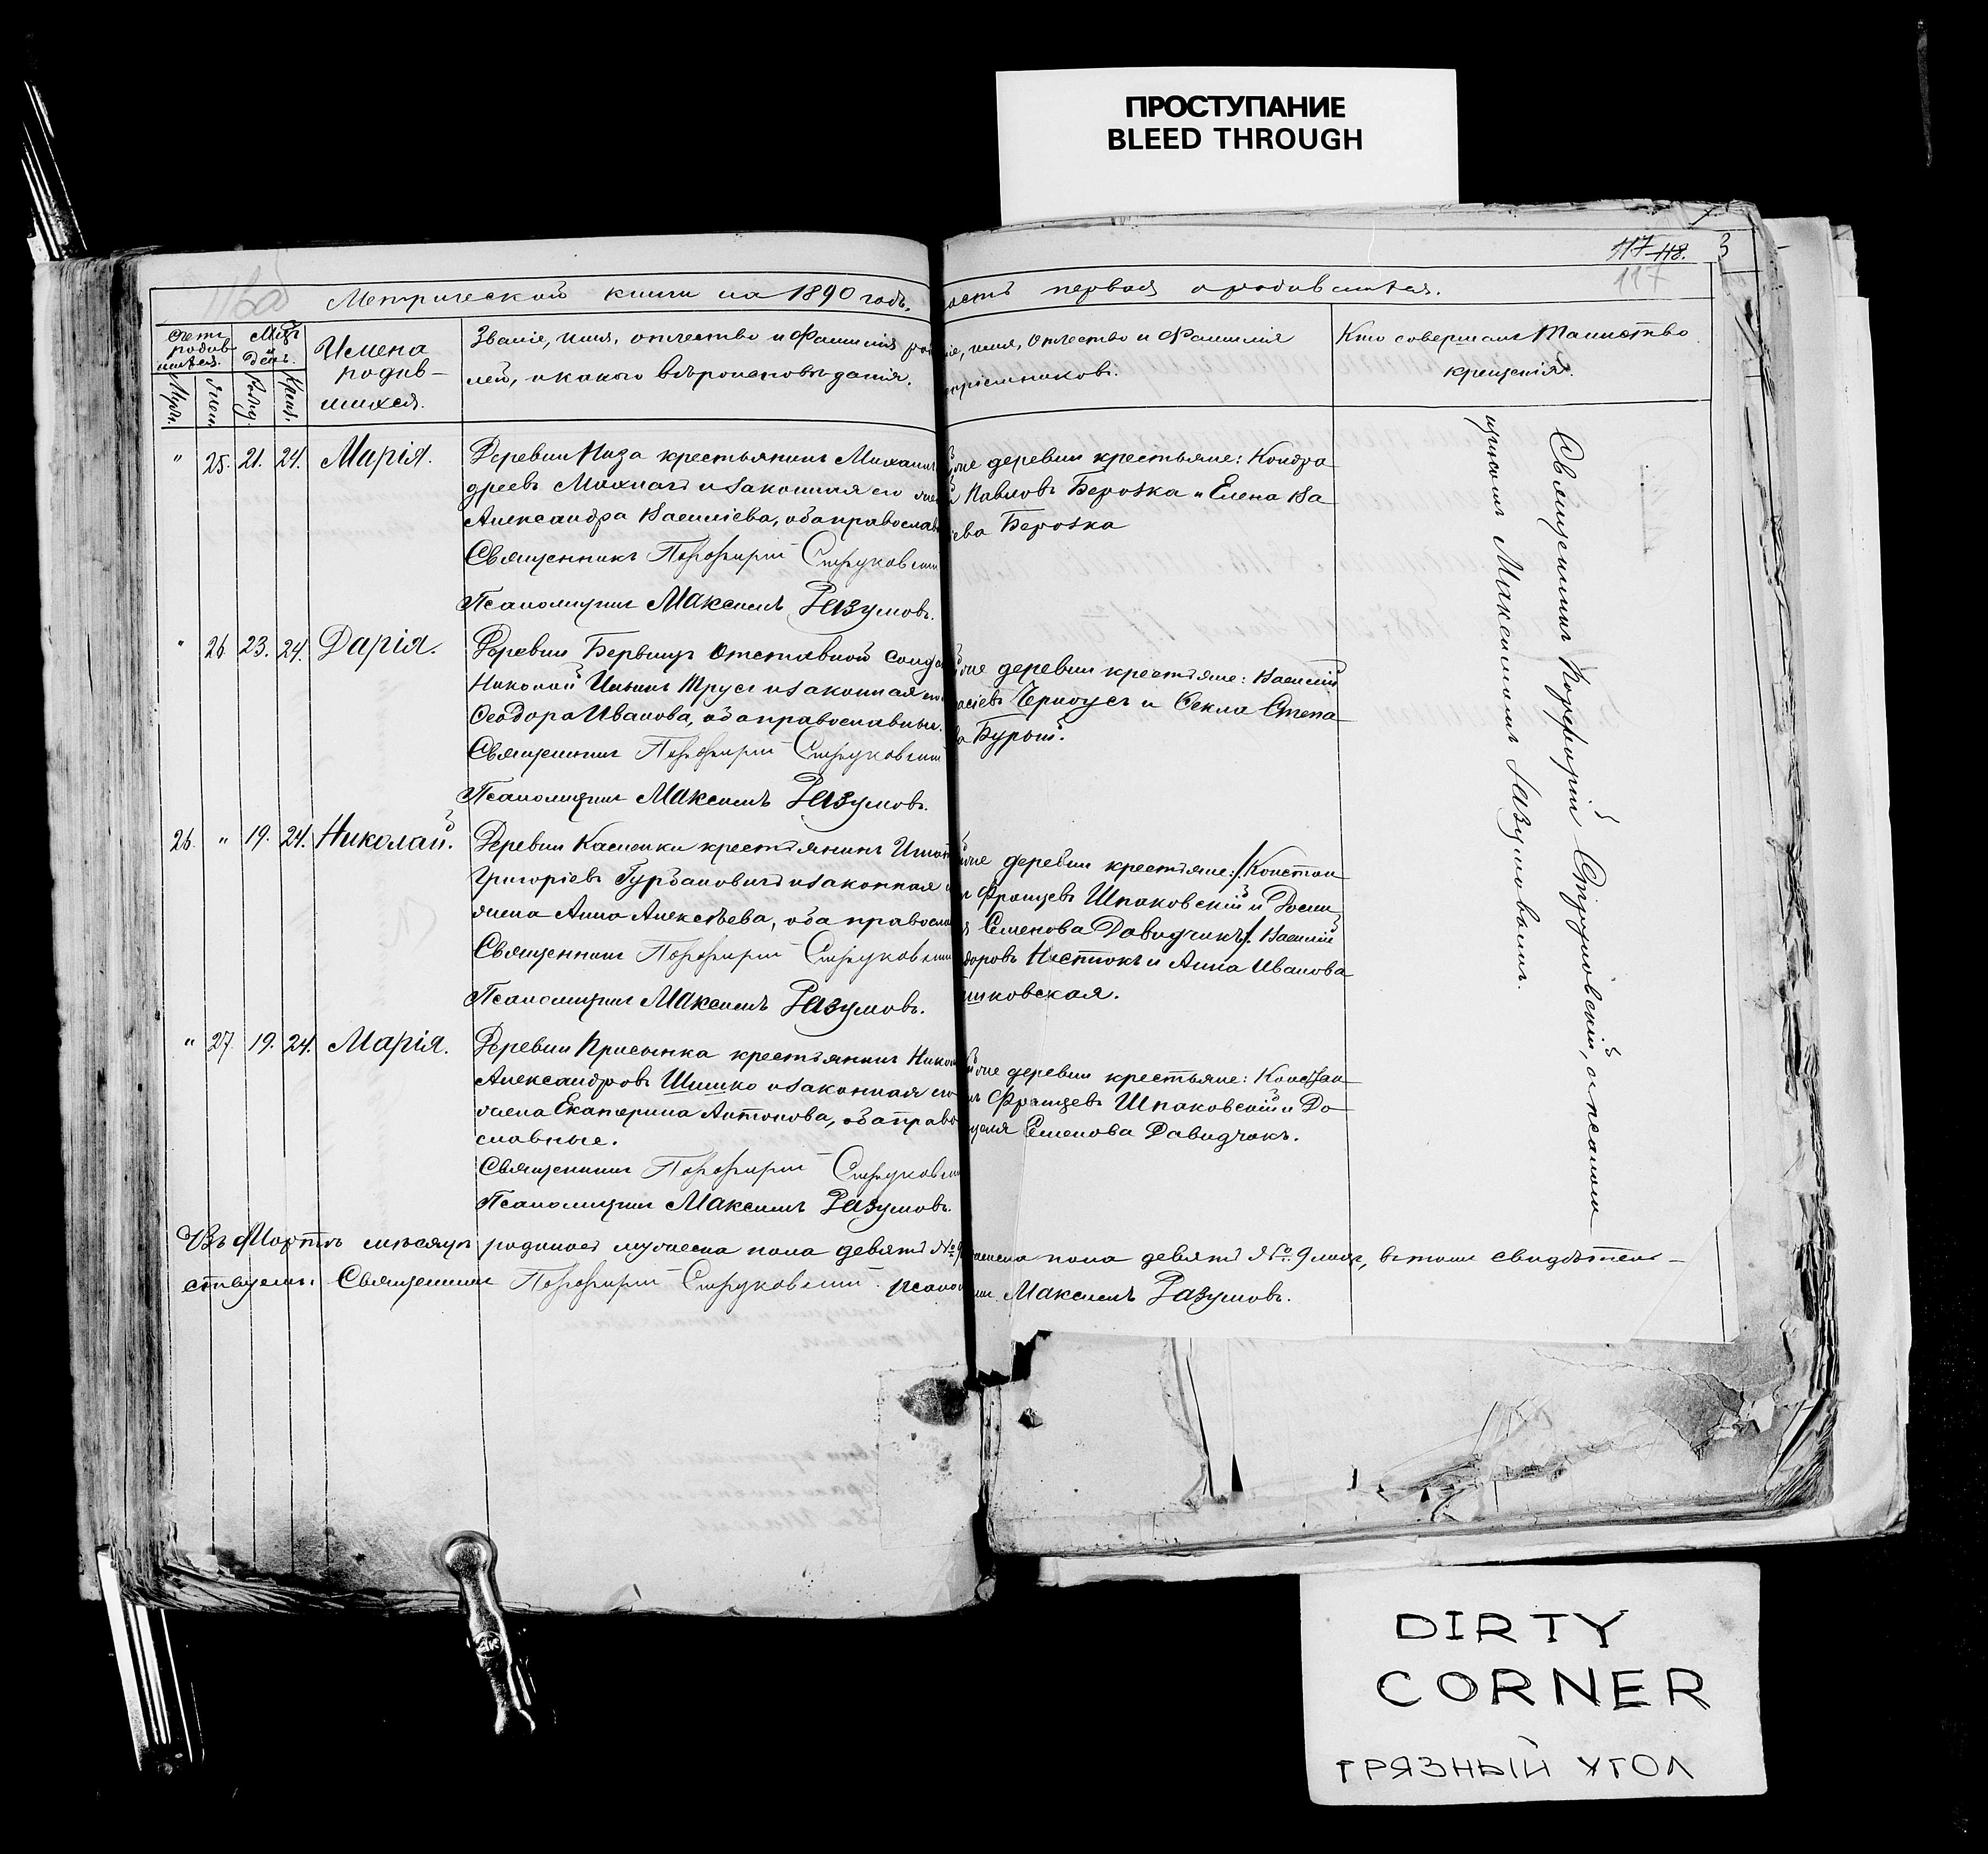 ПРОСТУПАНИЕ
BLEED THROUGH
117 118. 3
117
Метрической книги на 1890 годъ.
асть первая о родившихся.
Счетъ родив-шихся.
Мцъ и день.
Имена родив-шихся.
Званіе, имя, отчество и фамилія ро
лей, и какого вѣроисповѣданія.
іе, имя, отчество и фамилія
пріемниковъ.
Кто совершалъ таинство
крещенія.
" 25. 21. 24. Марія.
Деревни Низа крестьянинъ Михаилъ
дреевъ Махначъ и законная его же
Александра Василіева, оба православ
Священникъ Порфирій Струковскій
Псаломщикъ Максимъ Разумовъ.
же деревни крестьяне: Кондра
й Павловъ Берозка и Елена Ва
ева Берозка
" 26 23. 24. Дарія.
Деревни отставной солда
Николай Ильинъ Трусъ и законная его
Ѳеодора Иванова, оба православные.
Священникъ Порфирій Струковскій
Псаломщикъ Максимъ Разумовъ.
же деревни крестьяне: Василій
асіевъ Черноусъ и Ѳекла Степа
ва Бурый.
26. " 19. 24. Николай.
Деревни крестьянинъ Игнат
Григоріевъ Гурбановичъ и законная
жена Анна Алексѣева, оба правосла
Священникъ Порфирій Струковскій
Псаломщикъ Максимъ Разумовъ.
же деревни крестьяне:/. Констан
ъ Францевъ Шпаковскій и Доми
Семенова Давидчикъ/. Василій
доровъ Нестюкъ и Анна Иванова
шковская.
" 27. 19. 24. Марія.
Деревни Присынка крестьянинъ Никол
Александровъ Шишко и законная его
жена Екатерина Антонова, оба право
славные.
Священникъ Порфирій Струковскій
Псаломщикъ Максимъ Разумовъ.
же деревни крестьяне: Констан
нъ Францевъ Шпаковскій и До
Семенова Давидчикъ.
Священникъ Порфирій Струковскій, и псалом
щикомъ Максимомъ Разумовымъ.
Въ Мартѣ мѣсяцѣ родилось мужеска пола девять №9
женска пола девять №9 , въ томъ свидѣтель-
ствуемъ: Священникъ Порфирій Струковскій. Псалом
щикъ Максимъ Разумовъ.
DIRTY
CORNER
ГРЯЗНЫЙ УГОЛ